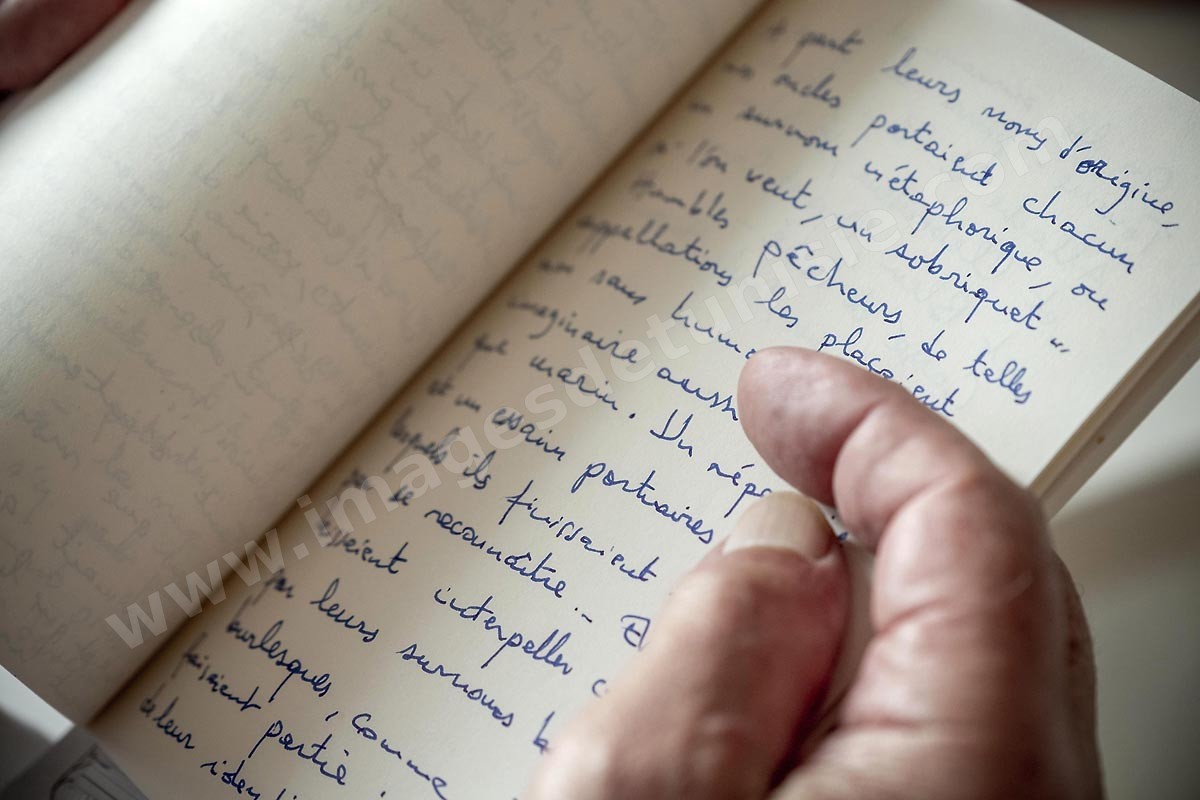 A part leurs noms d'origine,
oncles portaient chacun
un surnom métaphorique, ou
si l'on veut, un sobriquet "
Humbles pêcheurs, de telles
appellations les plaçaient
non sans hum
imaginaire auss
que marin. Un répe
et un essaim portuaires
lesquels ils finissaient
par se reconnaître. - E
interpeller
par leurs surnoms b
burlesques, comme
faisaient partie
de leur iden
www.imagesdetunisie.com